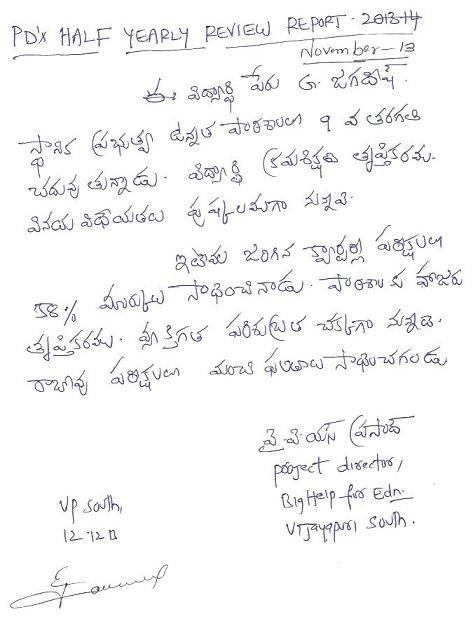 PD's HALF YEARLY REVIEW REPORT. 2013-14
November-13
ఈ విద్యార్థి పేరు G. జగదీష్.
స్థానిక ప్రభుత్వ ఉన్నత పాఠశాలలో 9 వ తరగతి
చదువుతున్నాడు. విద్యార్థి క్రమశిక్షణ తృప్తికరము.
వినయ విధేయతలు పుష్కలముగా నున్నవి.
ఇటీవల జరిగిన క్వార్టర్లీ పరీక్షలలో
58% మార్కులు సాధించినాడు. పాఠశాలకు హాజరు
తృప్తికరము. వ్యక్తిగత పరిశుభ్రత చక్కగా నున్నది.
రాబోవు పరీక్షలలో మంచి ఫలితాలు సాధించగలడు
వై.వి.యస్ ప్రసాద్
project director,
BigHelp for Edn.
Vijayapuri South.
VP South,
12.12.13